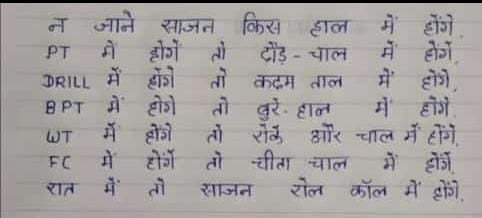 न जाने साजन किस हाल में होंगे,
PT में होंगें तो दौड़ - चाल में होंगें,
DRILL में होंगें तो कदम ताल में होंगे,
BPT में होंगे तो बुरे हाल में होंगे,
WT में होंगे तो रोके और चाल में होंगे,
FC में होंगें तो चीता चाल में होंगें,
रात में तो साजन रोल कॉल में होंगे,